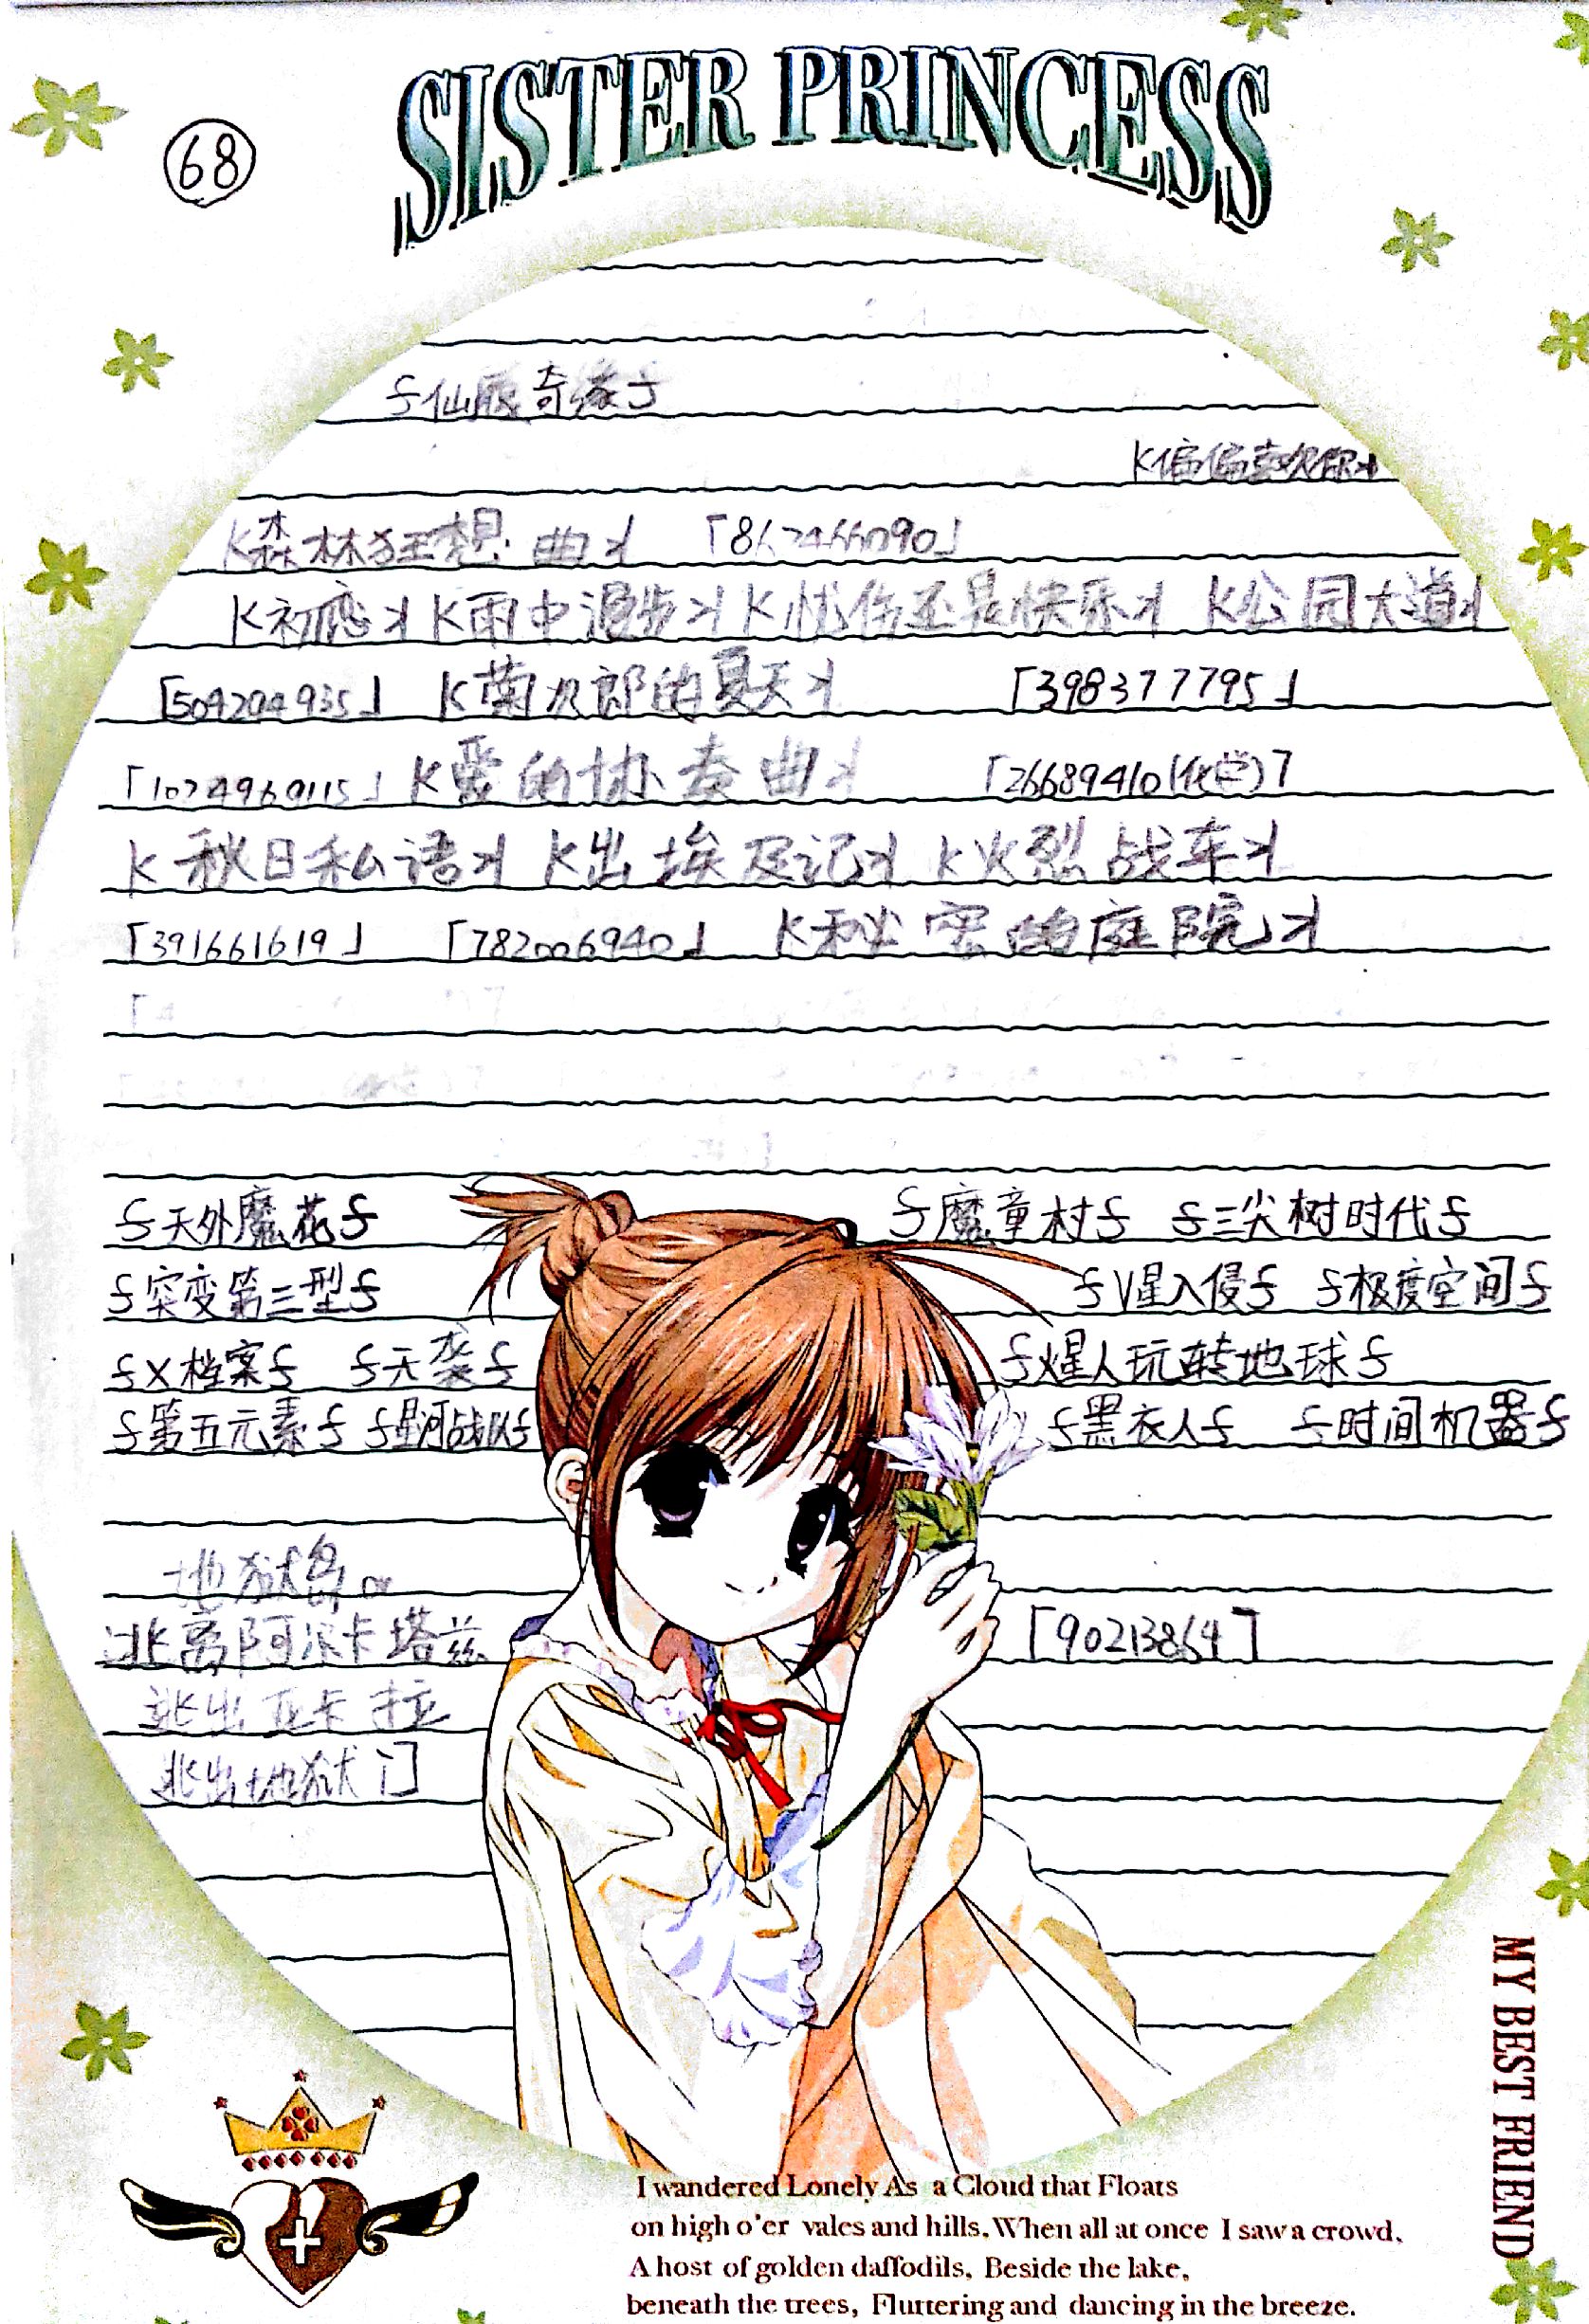 SISTER PRINCESS
68
⨍仙履奇缘⨍
K偏偏喜欢你⋊
K森林狂想曲⋊ 「862466090」
K初恋⋊ K雨中漫步⋊ K忧伤还是快乐⋊ K公园大道⋊
「504204935」 K菊次郎的夏天⋊ 「398377795」
「1024960115」 K爱的协奏曲⋊ 「26689410(化学)」
K秋日私语⋊ K出埃及记⋊ K火烈战车⋊
「391661619」 「782006940」 K秘密的庭院⋊
⨍天外魔花⨍ ⨍魔童村⨍ ⨍三尖树时代⨍
⨍突变第三型⨍ ⨍V星入侵⨍ ⨍极度空间⨍
⨍X档案⨍ ⨍天袭⨍ ⨍火星人玩转地球⨍
⨍第五元素⨍ ⨍星河战队⨍ ⨍黑衣人⨍ ⨍时间机器⨍
地狱岛
逃离阿尔卡塔兹 「90213864」
逃出亚卡拉
逃出地狱门
MY BEST FRIEND
I wandered Lonely As a Cloud that Floats
on high o'er vales and hills, When all at once I saw a crowd,
A host of golden daffodils, Beside the lake,
beneath the trees, Fluttering and dancing in the breeze.